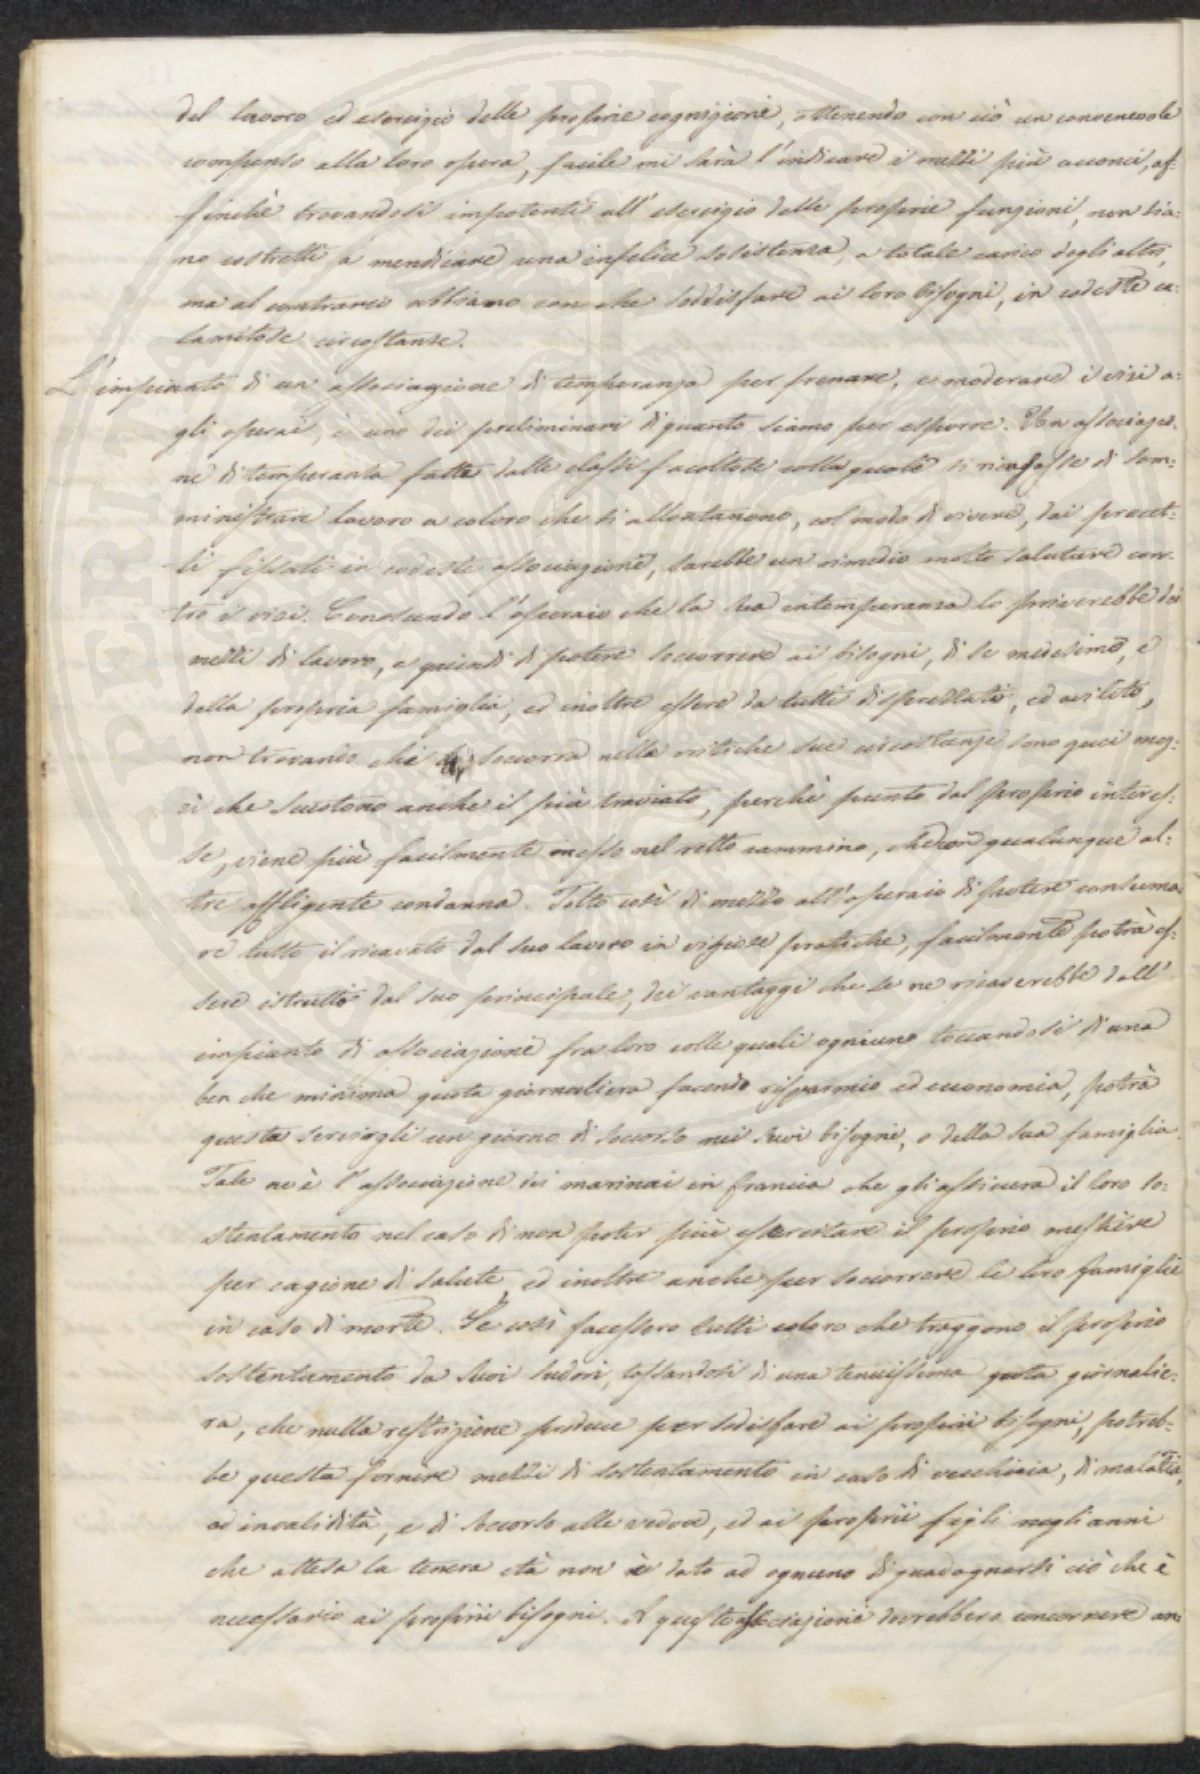 del lavoro ed esercizio delle proprie cognizioni, ottenendo con ciò un convenevole
compenso alla loro opera, facile mi sarà l'indicare i mezzi più acconci, af-
finchè trovandosi impotenti all'esercizio delle proprie funzioni, non sia-
no costretti a mendicare una infelice sosistenza, a totale carico degli altri,
ma al contrario abbiano con che soddisfare ai loro bisogni, in codeste ca-
lamitose circostanze.
L'impianto di un associazione di temperanza per frenare, e moderare i vizi a-
gli operai, è uno dei preliminari di quanto siamo per esporre. Un associazio-
ne di temperanza fatta dalle classi facoltose colla quale si ricusasse di som-
ministrare lavoro a coloro che si allontanono, col modo di vivere, dai precet-
ti fissati in codesta associazione, sarebbe un rimedio molto salutare con-
tro i vizi. Conoscendo l'operaio che la sua intemperanza lo priverebbe dei
mezzi di lavoro, e quindi di potere soccorrere ai bisogni, di se medesimo, e
della propria famiglia, ed inoltre essere da tutti disprezzato, ed avilito,
non trovando chi soccorra nella critiche sue circostanze sono quei mez-
zi che scuotono anche il più traviato, perchè punto dal proprio interes-
se, viene più facilmente messo nel retto cammino, che con qualunque al-
tra affligente condanna. Tolto così di mezzo all'operaio di potere consuma-
re tutto il ricavato dal suo lavoro in viziose pratiche, facilmente potrà es-
sere istrutto dal suo principale, dei vantaggi che se ne ricaverebbe dall'
impianto di associazione fra loro colle quali ogniuno toccandosi di una
ben che minima quota giornaliera facendo risparmio ed economia, potrà
questa servirgli un giorno di soccorso nei suoi bisogni, o della sua famiglia.
Tale ne è l'associazione dei marinai in francia che gli assicura il loro so-
stentamento nel caso di non poter più esercitare il proprio mestiere
per cagione di salute, ed inoltre anche per soccorrere le loro famiglie
in caso di morte. Se così facessero tutti coloro che traggono il proprio
sostentamento da suoi sudori, tassandosi di una tenuissima quota giornalie-
ra, che nulla restrizione produce per sodisfare ai proprii bisogni, potreb-
be questa fornire mezzi di sostentamento in caso di vecchiaia, di malattia,
od invalidità, e di soccorso alle vedove, ed ai proprii figli negli anni
che attesa la tenera età non è dato ad ognuno di guadagnarsi ciò che è
necessario ai proprii bisogni. A queste associazioni dovrebbero concorrere an-